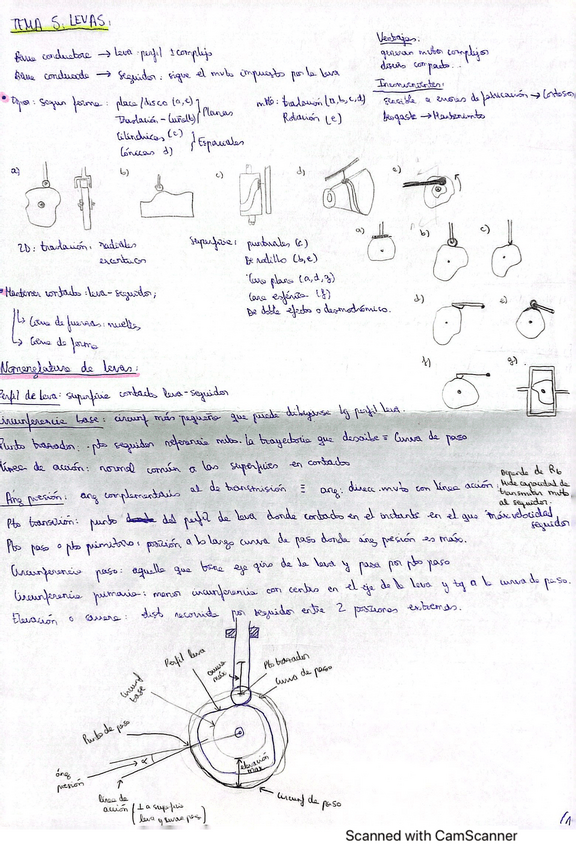 TEMA 5: LEVAS:
Barra conductora → leva: perfil complejo
Barra conducida → seguidor: sigue el mvto impuesto por la leva
Ventajas:
generan mvtos complejos
diseño compacto...
Inconvenientes:
sensible a errores de fabricación → costoso
desgaste → Mantenimto
Tipos: según forma: placa/disco (a,e) } Planas
Traslación
Cilíndricas (c) } Espaciales
Cónicas d)
mto: traslación (a,b,c,d)
Rotación (e)
a) b) c) d) e)
2D: traslación: radiales
excéntricos
Superficie: puntuales (c)
De rodillo (b,e)
Cara plana (a,d,g)
Cara esférica (f)
De doble efecto o desmodrómico.
a) b) c)
d) e)
f) g)
Mantener contacto leva-seguidor:
↳ Cierre de fuerza: muelles
↳ Cierre de forma
Nomenclatura de levas:
Perfil de leva: superficie contacto leva-seguidor
Circunferencia base: circunf más pequeña que puede dibujarse tg perfil leva.
Punto trazador: pto seguidor referencia mvto. la trayectoria que describe = Curva de paso
Línea de acción: normal común a las superficies en contacto
Ang presión: ang complementario al de transmisión ≡ ang: direcc. mvto con línea acción
Depende de Rb
Mide capacidad de
transmitir mvto
al seguidor.
Pto transición: punto del perfil de leva donde contacto en el instante en el que máx velocidad seguidor
Pto paso o pto primitivo: posición a lo largo curva de paso donde áng presión es máx.
Circunferencia paso: aquella que tiene eje giro de la leva y pasa por pto paso
Circunferencia primaria: menor circunferencia con centro en el eje de la leva y tg a la curva de paso.
Elevación o carrera: dist recorrida por seguidor entre 2 posiciones extremas.
Perfil leva
carrera máx
Pto trazador
Curva de paso
circunf base
Punto de paso
α
áng presión
elevación máx
línea de acción (⊥ a superfic leva y curva paso)
circunf de paso
Scanned with CamScanner